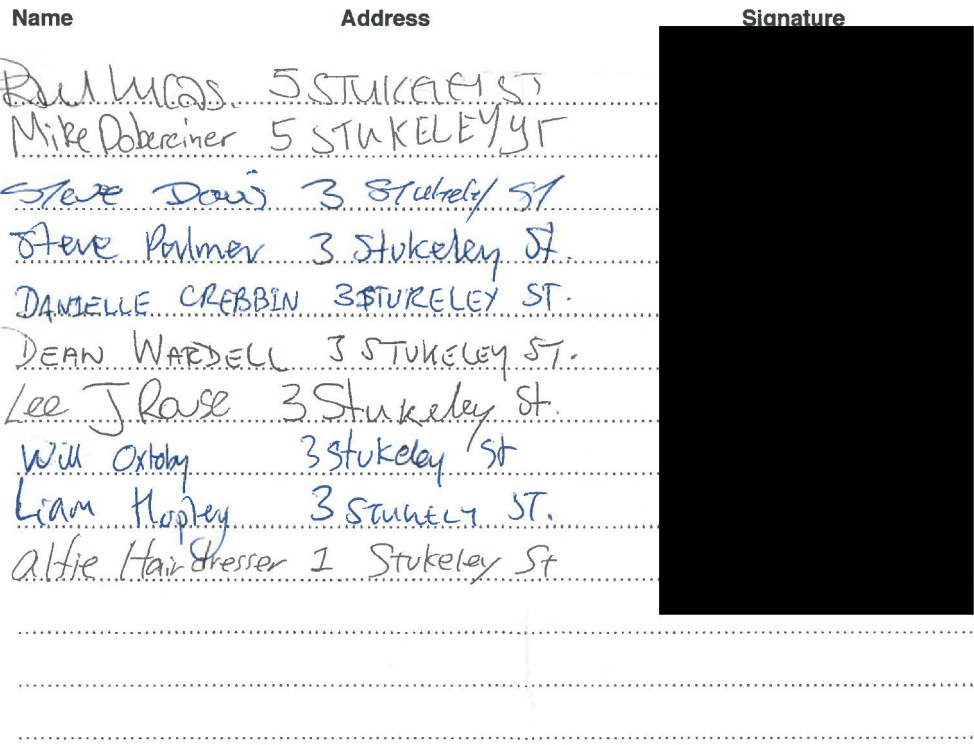 Name Address Signature
Paul Lucas. 5 STUKELEY ST
Mike Dobereiner 5 STUKELEY ST
Steve Davis 3 Stukely ST
Steve Palmer 3 Stukeley St.
DANIELLE CREBBIN 3 STUKELEY ST.
DEAN WARDELL 3 STUKELEY ST.
Lee J Rouse 3 Stukeley St.
Will Oxtoby 3 Stukeley St
Liam Hopley 3 STUKELY ST.
Alfie Hairdresser 1 Stukeley St